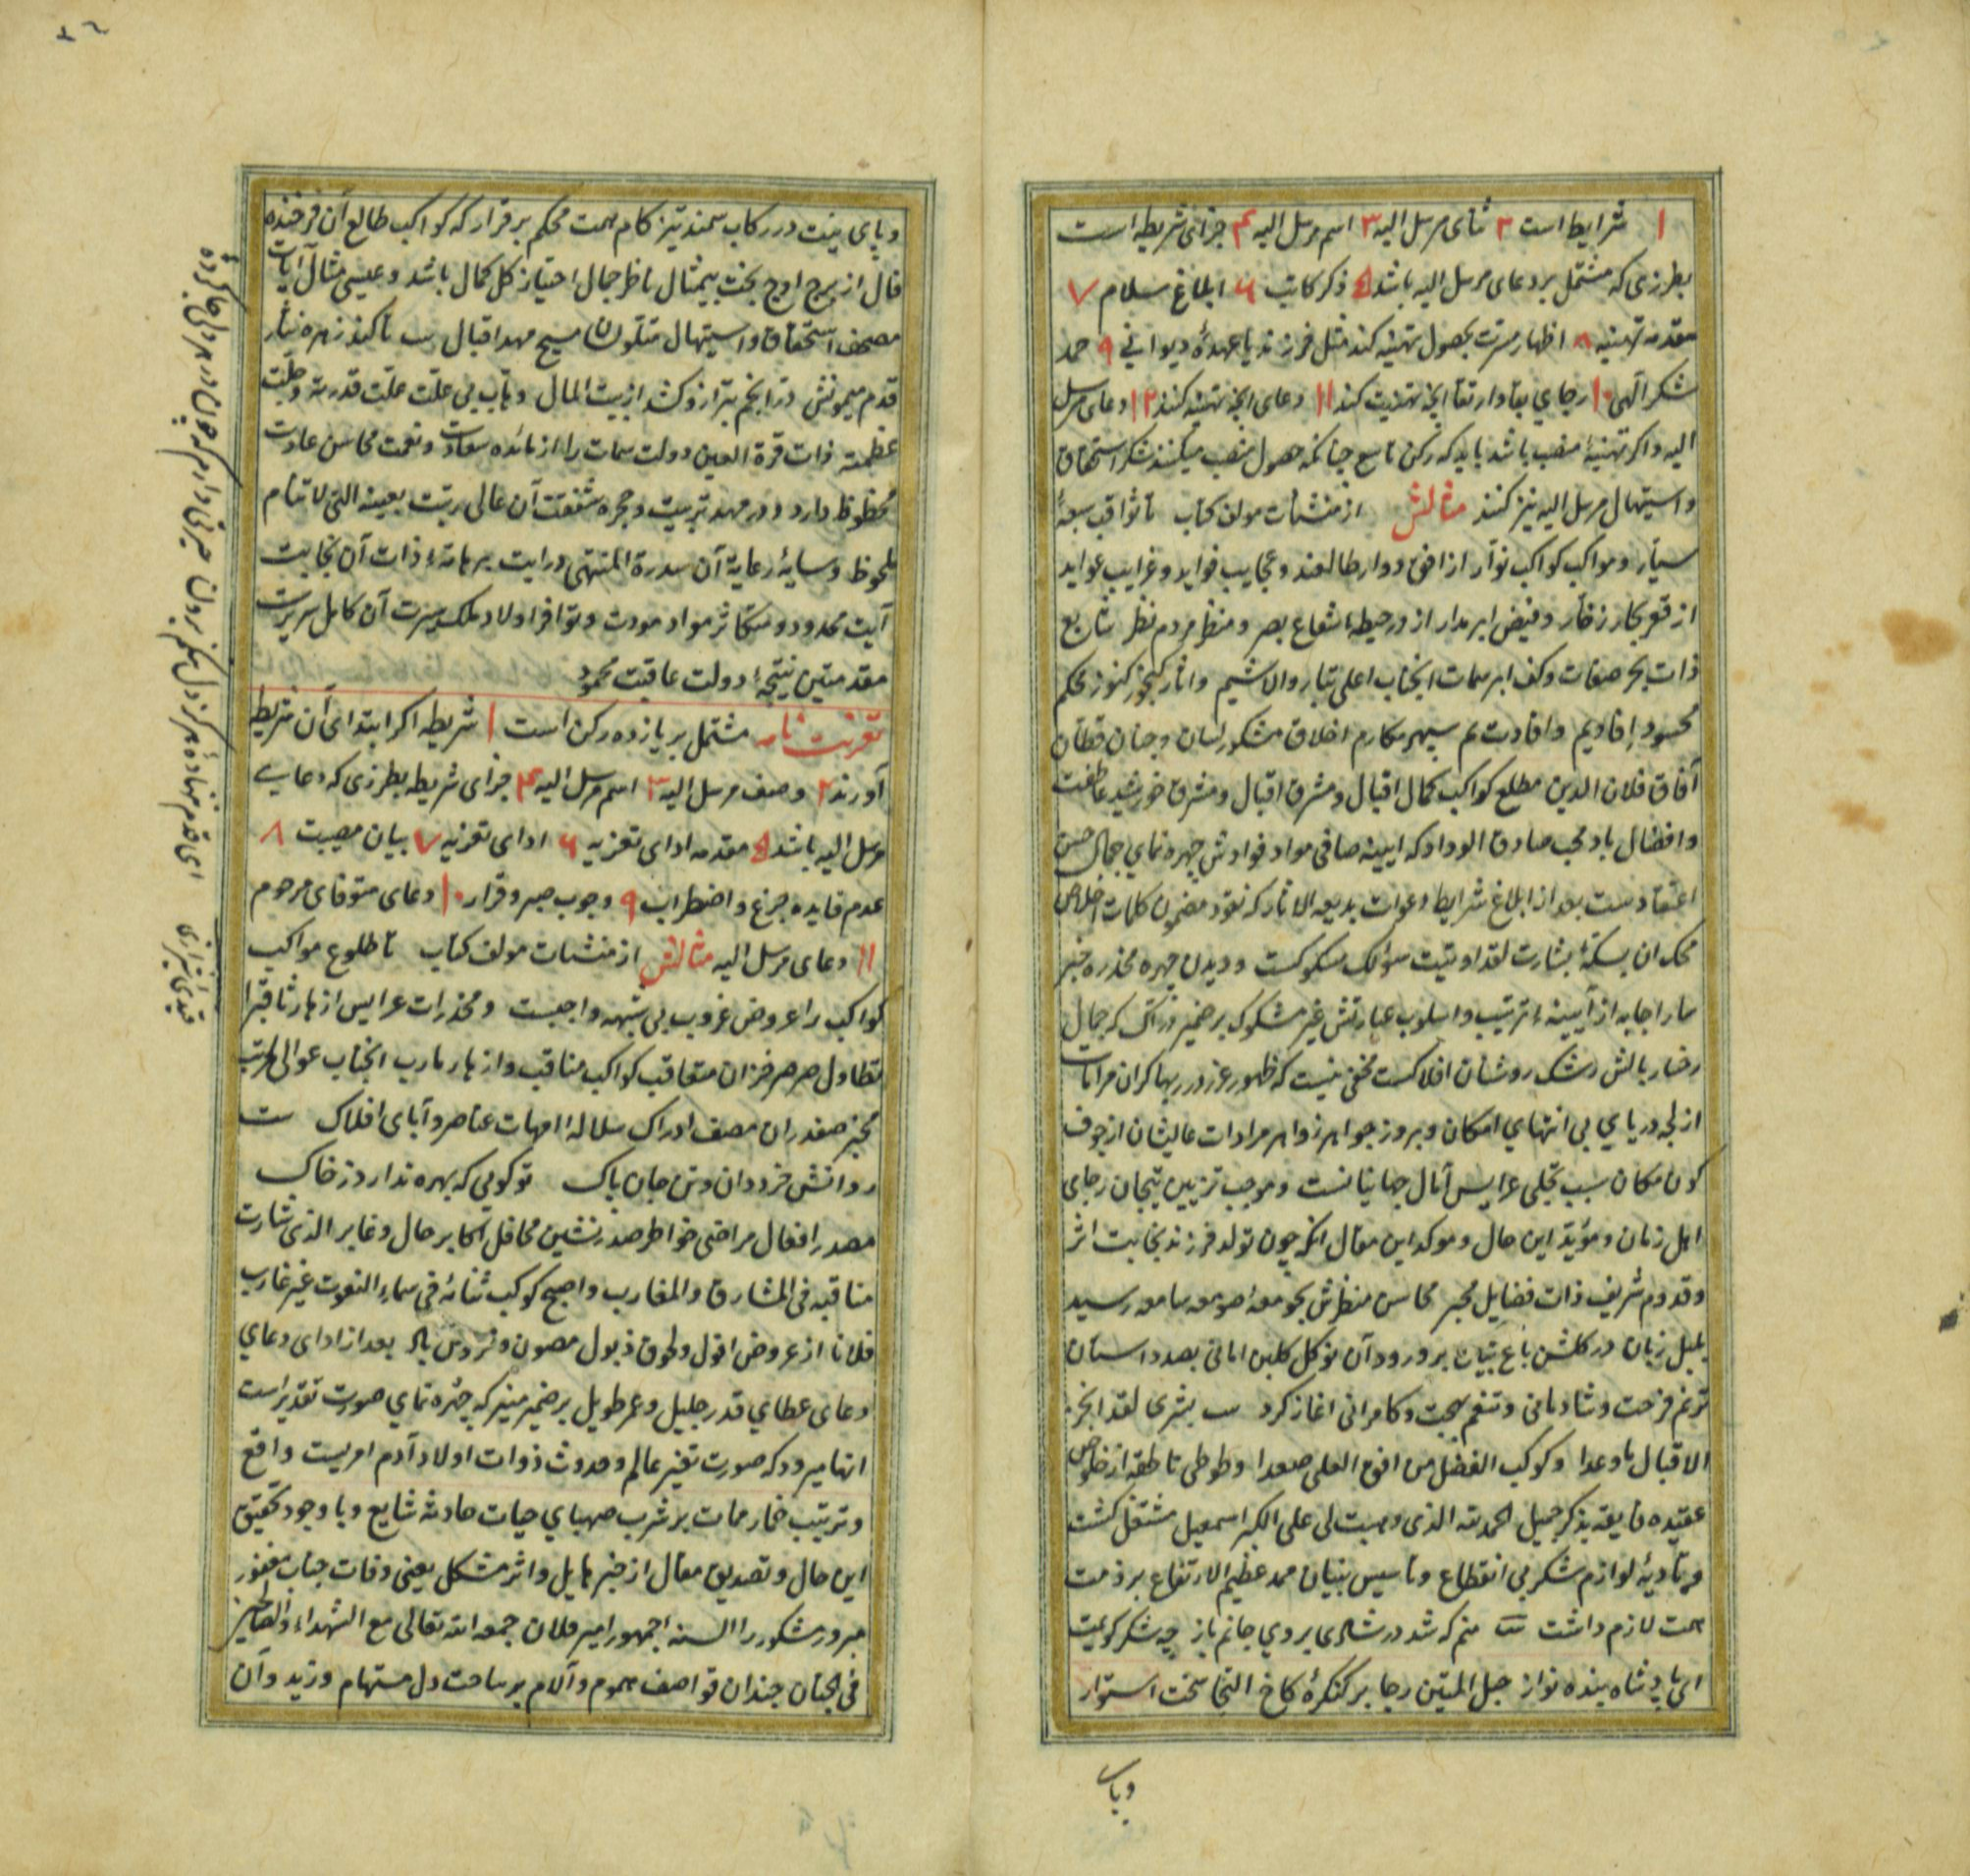 ۱ شرایط است ۲ ثنای مرسل الیه ۳ اسم مرسل الیه ۴ جزای شریطه است
بطرزی که مشتمل بر دعای مرسل الیه باشد ۵ ذکر کاتب ۶ ابلاغ سلام ۷
مقدمه تهنیه ۸ اظهار مسرت بحصول تهنیه کنند مثل فرزند یا عهدهٔ دیوانی ۹ حمد
شکر الهی ۱۰ رجای بقا و ارتقا آنچه تهنیت کنند ۱۱ دعای آنچه تهنیه کنند ۱۲ دعای مرسل
الیه و اکر تهنیهٔ منصب باشد باید که رکن تاسع چنانکه حصول منصب میکنند شکر استحقاق
و استیهال مرسل الیه نیز کنند مثالش از منشآت مولف کتاب تا ثواقب سبعهٔ
سیار و مواکب کواکب نوار از افق دوار طالعند و عجایب فواید و غرایب عواید
از قعر بحار زخار و فیض ابر مدار از در حیطهٔ شعاع بصر و منظر مردم نظر شایع
ذات بحر صفات و کف ابر سمات انجناب اعلی تبار والا شیم
محسود سپهر مکارم اخلاق مشکور لسان و جنان قطان
آفاق فلان الدین مطلع کواکب کمال اقبال و مشرق اقبال و مشرق خورشید عاطفت
و افضال باد محب صادق الوداد که آیینه صافی مواد فوادش چهره نمای جمال حسن
اعتقادست بعد از ابلاغ شرایط دعوات بدیعه الاثار که نقود مضمون کلمات اخلاص
محک ان بسکهٔ بشارت لقد اوتیت سؤلک مسکوکست و دیدن چهره مخدره خبر
سار اجابه از آیینهٔ ترتیب و اسلوب عبارتش غیر مشکوک بر ضمیر دراک که جمال
رخسار بالش رشک روشنان افلاکست مخفی نیست که ظهور غرر در بهاکران مرادات
از لجه دریای بی انتهای امکان و بروز جواهر زواهر مرادات عالیشان از جوف
کون مکان سبب تجلی عرایس آمال جهانیانست و موجب تزیین تیجان رجای
اهل زمان و مؤید این حال و موکد این مقال انکه چون تولد فرزند نجابت اثر
و قدوم شریف ذات فضایل مخبر محاسن منظرش بجومعه صومعه سامعه رسید
بلبل زبان در کلشن باغ بیان بر ورود آن نوکل کلبن امانی بصد داستان
ترنم فرحت و شادمانی و تنغم بهجت و کامرانی اغاز کرد ب بشری لقد انجز
الاقبال ما وعدا و کوکب الفضل من افق العلی صعدا و طوطی ناطقه از خلوص
عقیده فایقه بذکر جمیل الحمد لله الذی وهب لی علی الکبر اسمعیل مشتغل کشت
و تأدیهٔ لوازم شکر بی انقطاع و تاسیس بنیان حمد عظیم الارتفاع بر ذمت
همت لازم داشت بیت منم که شد در شادی بروی جانم باز چه شکر کویمت
ای پادشاه بنده نواز حبل المتین رجا بر کنکرهٔ کاخ التجا سخت استوار
وپای
و پای نیت در رکاب سمند تیز کام همت محکم برقرار که کواکب طالع آن فرخنده
فال از برج اوج بخت بیمثال ناظر جمال احتیاز کل کمال باشد و عیسی مثال آیات
مصحف استحقاق و استیهال متلون مسیح مهد اقبال ب تا کند زهره نثار
قدم میمونش در انجم بترازو کشد از بیت المال و باب بی علت علت قدرته و جلت
عظمته ذات قرة العین دولت سمات را از مائده سعادت و نعمت محاسن عادت
محظوظ دارد و در مهد تربیت و حجره شفقت آن عالی رتبت بعینه التی لاتنام
ملحوظ و سایهٔ رعایة آن سدرة المنتهی درایت بر هامهٔ ذات آن نجابت
آیت ممدود و متکاثر مواد مودت و توافر اولاد ملک سیرت آن کامل سریرت
مقدمتین نتیجهٔ دولت عاقبت محمود
تعزیت نامه مشتمل بر یازده رکن است ۱ شریطه اکر ابتدای آن شریطه
آورند ۲ وصف مرسل الیه ۳ اسم مرسل الیه ۴ جزای شریطه بطرزی که دعای
مرسل الیه باشد ۵ مقدمه ادای تعزیه ۶ ادای تعزیه ۷ بیان مصیبت ۸
عدم فایده جزع و اضطراب ۹ وجوب صبر و قرار ۱۰ دعای متوفای مرحوم
۱۱ دعای مرسل الیه مثالش از منشات مولف کتاب تا طلوع مواکب
کواکب را عروض غروب بی شبهه واجبست و مخدرات عرایس ازهار ثاقب را
تطاول صرصر خزان متعاقب کواکب مناقب و ازهار مارب انجناب عوالی مراتب
مخبر صفدران مصف ادراک سلالهٔ امهات عناصر و آبای افلاک بیت
روانش خرد دان و تن جان پاک تو کویی که بهره ندارد ز خاک
مصدر افعال مراضی خواطر صدرنشین محافل اکابر حال و غابر الذی شارت
مناقبه فی المشارق و المغارب و اصبح کوکب ثنائه فی سماء النعوت غیر غارب
فلانا از عروض افول و طوق ذبول مصون و محروس باد بعد از ادای دعای
دعای عطای قدر جلیل و عمر طویل بر ضمیر منیر که چهره نمای صورت تقدیر است
انها میرود که صورت تغیر عالم و حدوث ذوات اولاد آدم امریست واقع
و ترتیب خمار ممات بر شرب صهبای حیات حادثه شایع و با وجود تحقیق
این حال و تصدیق مقال از خبر هایل و اثر مشکل یعنی وفات جناب مغفور
مبرور مشکور را السنه الجمهور امیر فلان جمعه الله تعالی مع الشهداء و الصالحین
فی الجنان چندان قواصف هموم و آلام بر ساحت دل مستهام وزید و آن